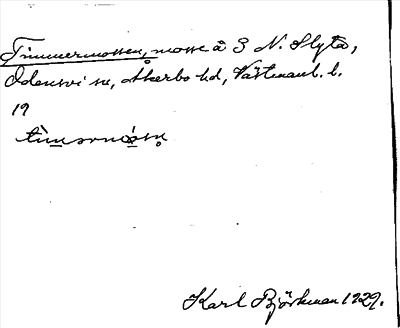 Timmermossen, mosse å S N. Slyta,
Odensvi sn, Åkerbo hd, Västmanl. l.
19
Karl Björkman 1929.